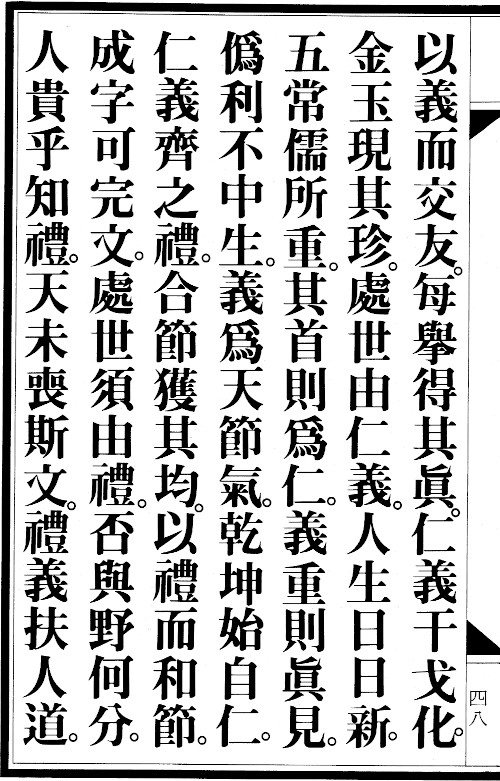 以義而交友。每擧得其眞。仁義干戈化。
金玉現其珍。處世由仁義。人生日日新。
五常儒所重。其首則爲仁。義重則眞見。
僞利不中生。義爲天節氣。乾坤始自仁。
仁義齊之禮。合節獲其均。以禮而和節。
成字可完文。處世須由禮。否與野何分。
人貴乎知禮。天未喪斯文。禮義扶人道。
四八